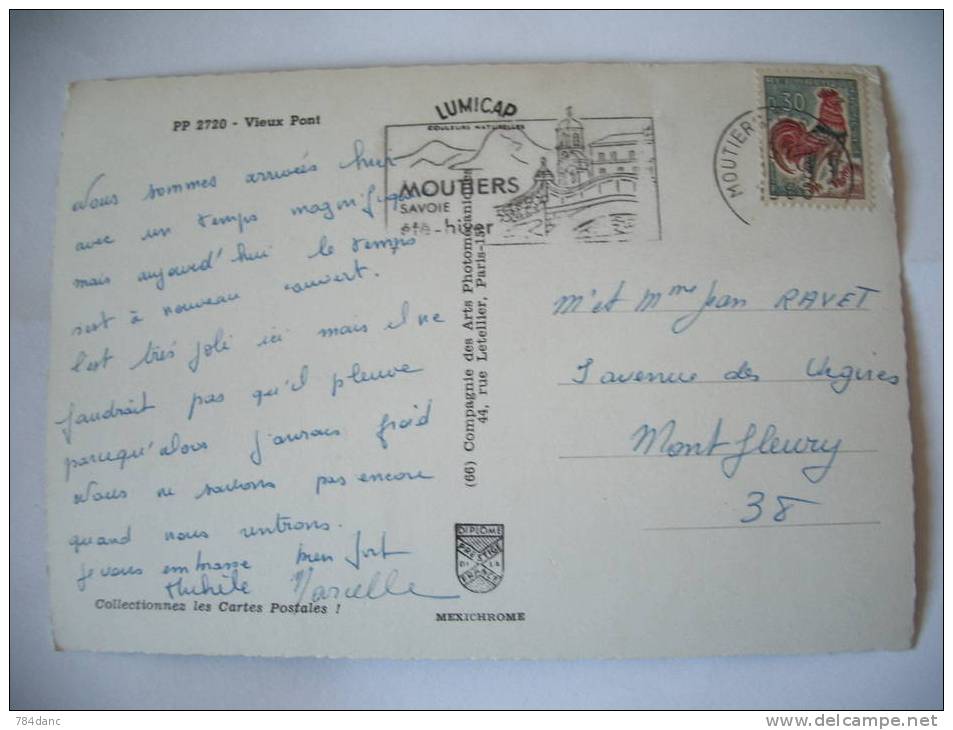 PP 2720 - Vieux Pont
LUMICAP
COULEURS NATURELLES
MOUTIERS
SAVOIE
été-hiver
MOUTIERS
0,30
Nous sommes arrivées hier
avec un temps magnifique
mais aujourd'hui le temps
s'est à nouveau couvert.
C'est très joli ici mais il ne
faudrait pas qu'il pleuve
parcequ'alors j'aurais froid
Nous ne savons pas encore
quand nous rentrons.
Je vous embrasse bien fort
Michèle Marcelle
Collectionnez les Cartes Postales !
(66) Compagnie des Arts Photomécaniques
44, rue Letellier, Paris-15e
DIPLOME
PRESTIGE
DE LA
FRANCE
MEXICHROME
Mr et Mme Jean RAVET
avenue des
Montfleury
38
784danc
www.delcampe.net